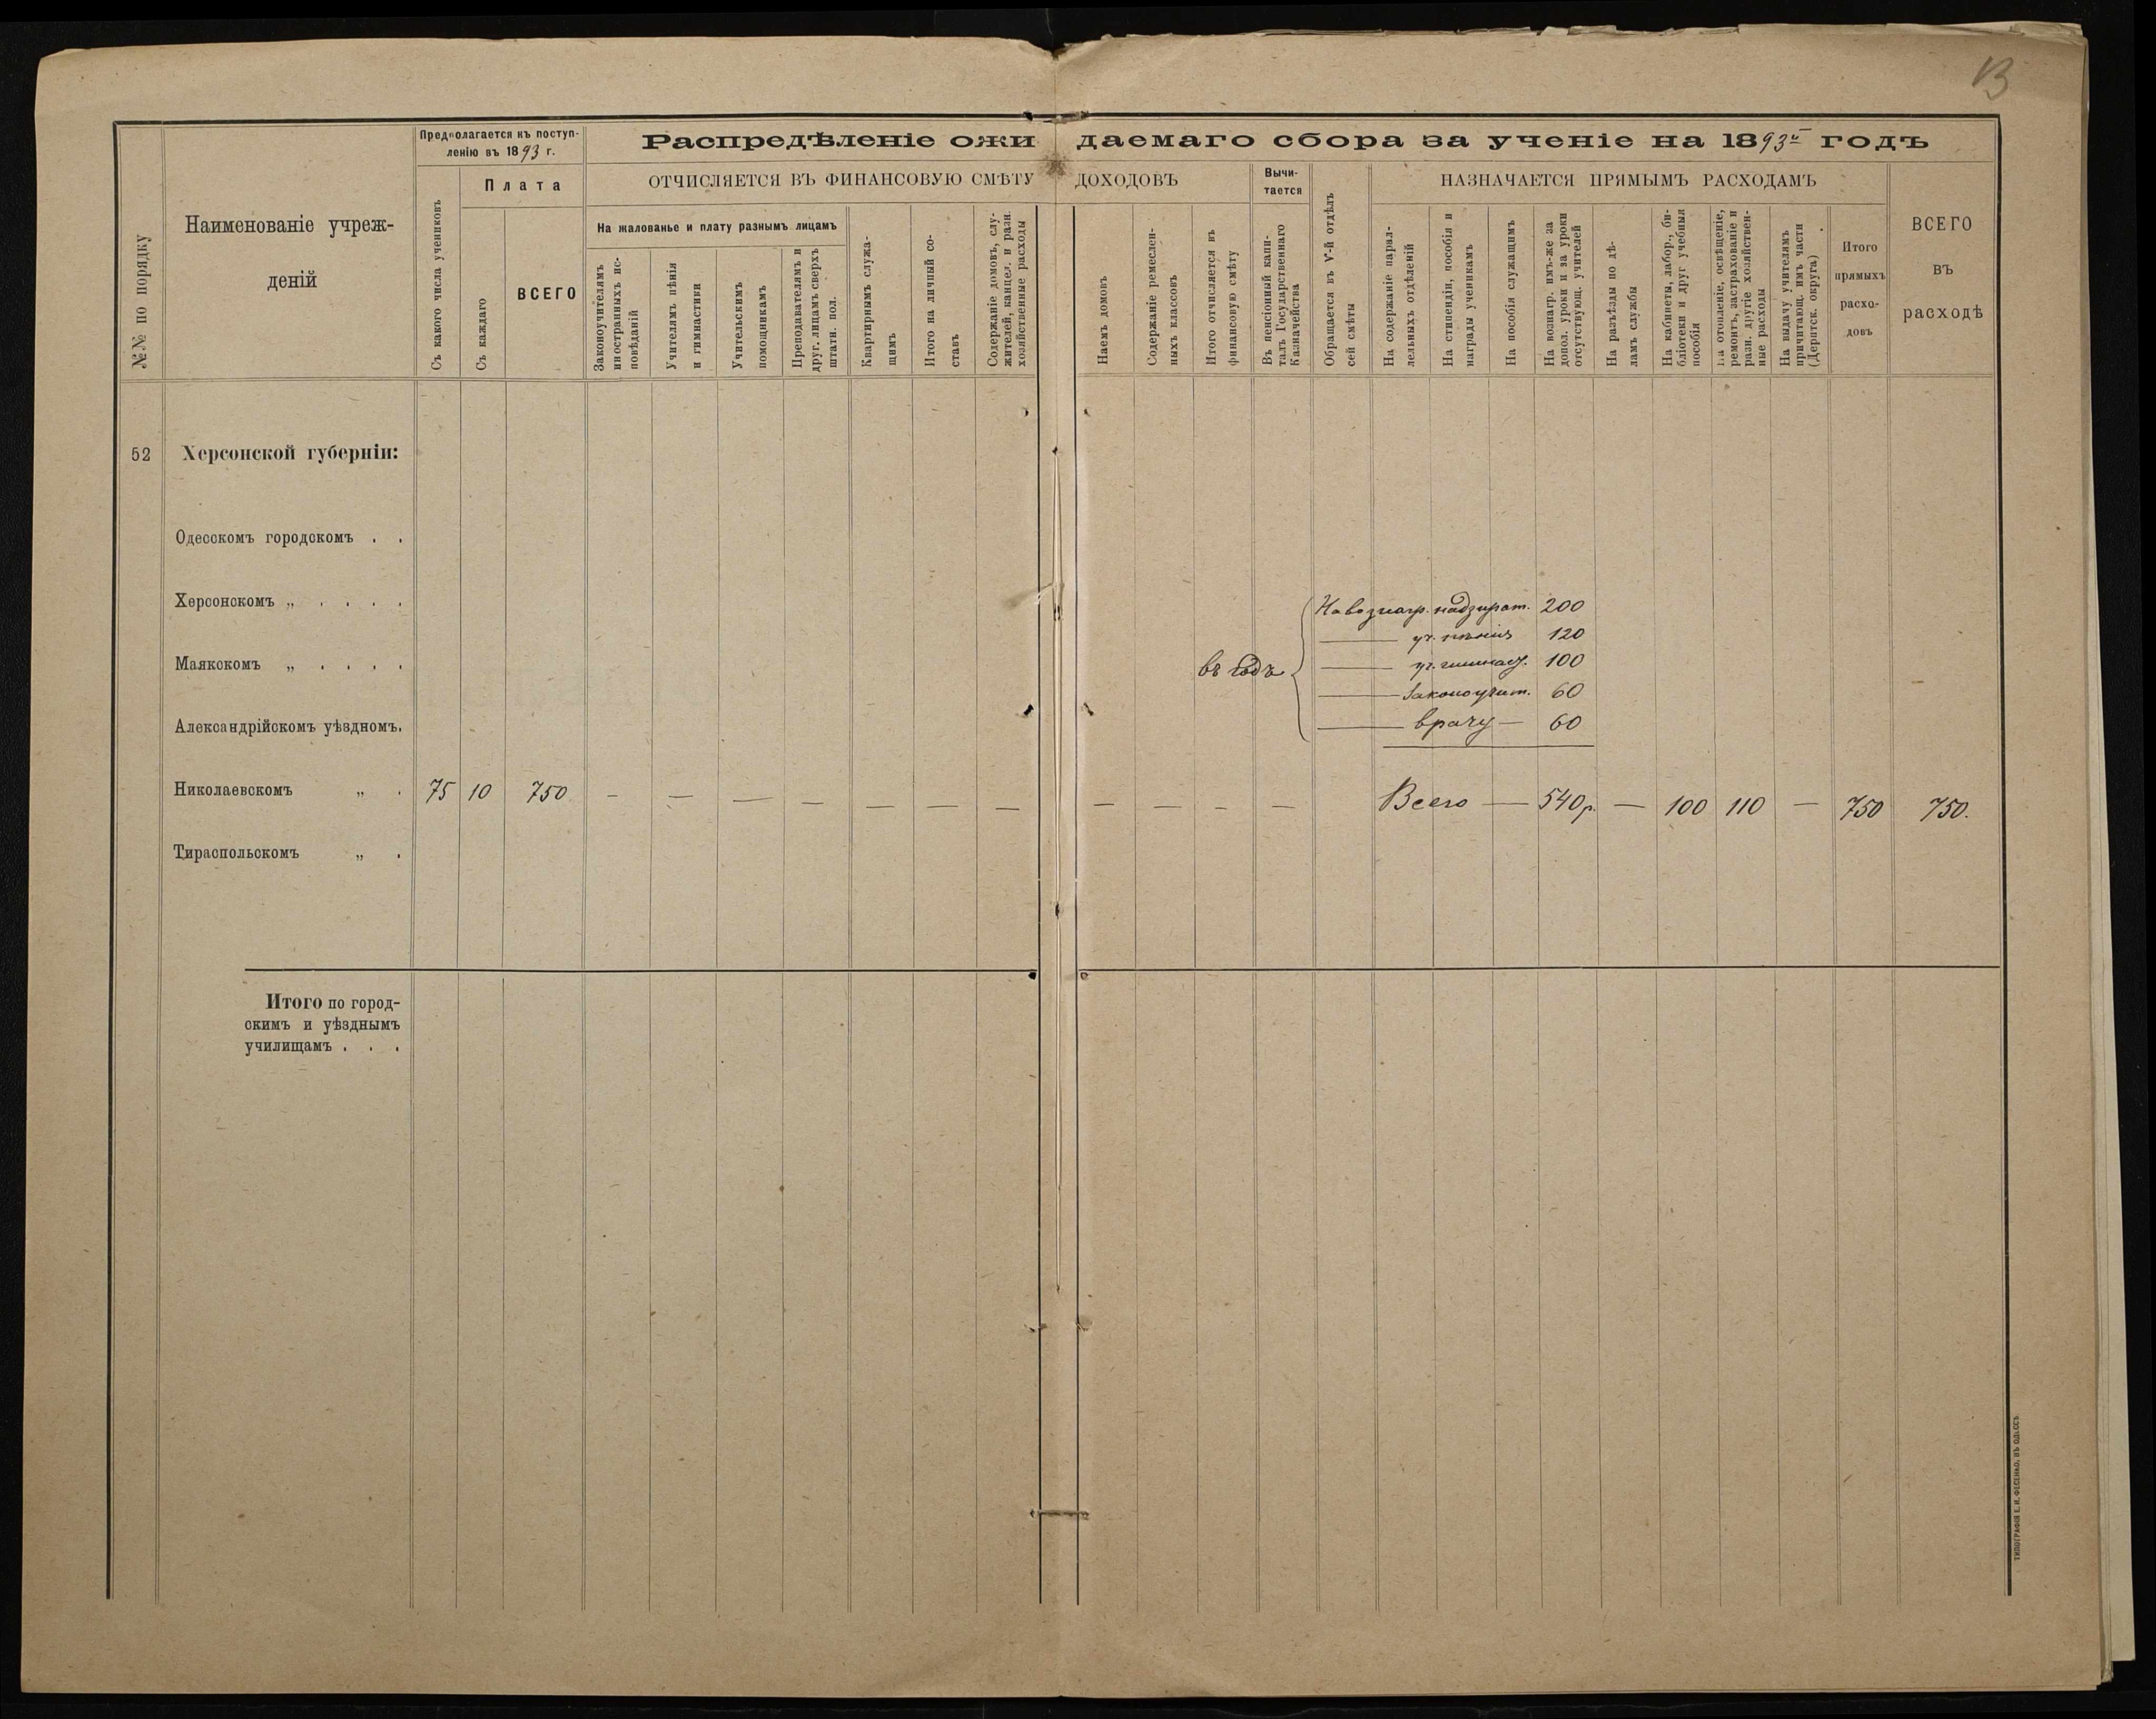 13
Предполагается къ поступ-
ленію въ 1893 г.
Распредѣленіе ожи
даемаго сбора за ученіе на 1893й годъ
№№ по порядку
Наименованіе учреж-
деній
Съ какого числа учениковъ
Плата
Съ каждаго
ВСЕГО
ОТЧИСЛЯЕТСЯ ВЪ ФИНАНСОВУЮ СМѢТУ
ДОХОДОВЪ
На жалованье и плату разнымъ лицамъ
Законоучителямъ
иностранныхъ ис-
повѣданій
Учителямъ пѣнія
и гимнастики
Учительскимъ
помощникамъ
Преподавателямъ и
друг. лицамъ сверхъ
штатн. пол.
Квартирнымъ служа-
щимъ
Итого на личный со-
ставъ
Содержаніе домовъ, слу-
жителей, канцел. и разн.
хозяйственные расходы
Наемъ домовъ
Содержаніе ремеслен-
ныхъ классовъ
Итого отчисляется въ
финансовую смѣту
Вычи-
тается
Въ пенсіонный капи-
талъ Государственнаго
Казначейства
Обращается въ V-й отдѣлъ
сей смѣты
НАЗНАЧАЕТСЯ ПРЯМЫМЪ РАСХОДАМЪ
На содержаніе парал-
лельныхъ отдѣленій
На стипендіи, пособія и
награды ученикамъ
На пособія служащимъ
На вознагр. имъ-же за
допол. уроки и за уроки
отсутствующ. учителей
На разъѣзды по дѣ-
ламъ службы
На кабинеты, лабор., би-
бліотеки и друг учебныя
пособія
На отопленіе, освѣщеніе,
ремонтъ, застрахованіе и
разн. другіе хозяйствен-
ные расходы
На выдачу учителямъ
причитающ. имъ части
(Дерптск. округа)
Итого
прямыхъ
расхо-
довъ
ВСЕГО
въ
расходѣ
52 Херсонской губерніи:
Одесскомъ городскомъ . .
Херсонскомъ „ . . . .
Маякскомъ „ . . . .
Александрійскомъ уѣздномъ.
въ годъ
На вознагр. надзират. 200
— уч. пѣнія 120
— уч. гимнаст. 100
— Законоучит. 60
— врачу — 60
Николаевскомъ „ . 75 10 750 — — — — — — — — — — — Всего — 540р. — 100 110 — 750 750.
Тираспольскомъ „ .
Итого по город-
скимъ и уѣзднымъ
училищамъ . . .
ТИПОГРАФІЯ Е. И. ФЕСЕНКО, ВЪ ОДЕССѢ